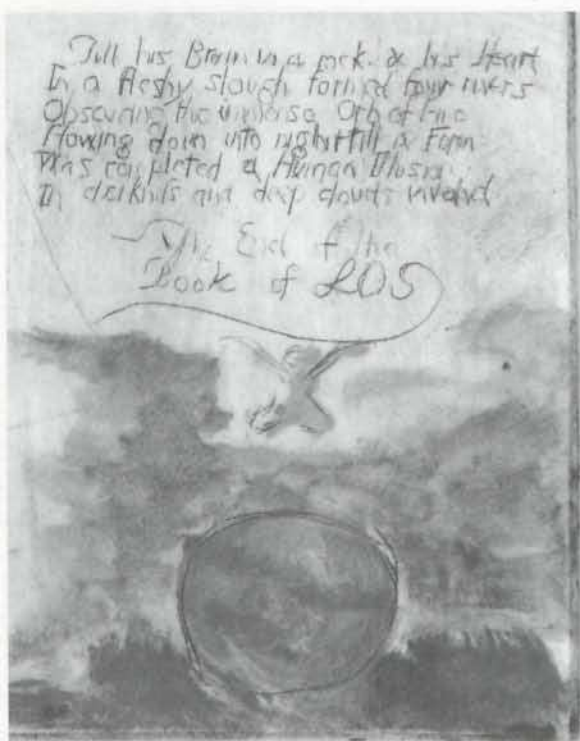 Till his Brain in a rock. & his Heart
In a fleshy slough formed four rivers
Obscuring the immense Orb of fire
Flowing down into night till a Form
Was completed a Human Illusion
In darkness and deep clouds involvd
The End of the
Book of LOS